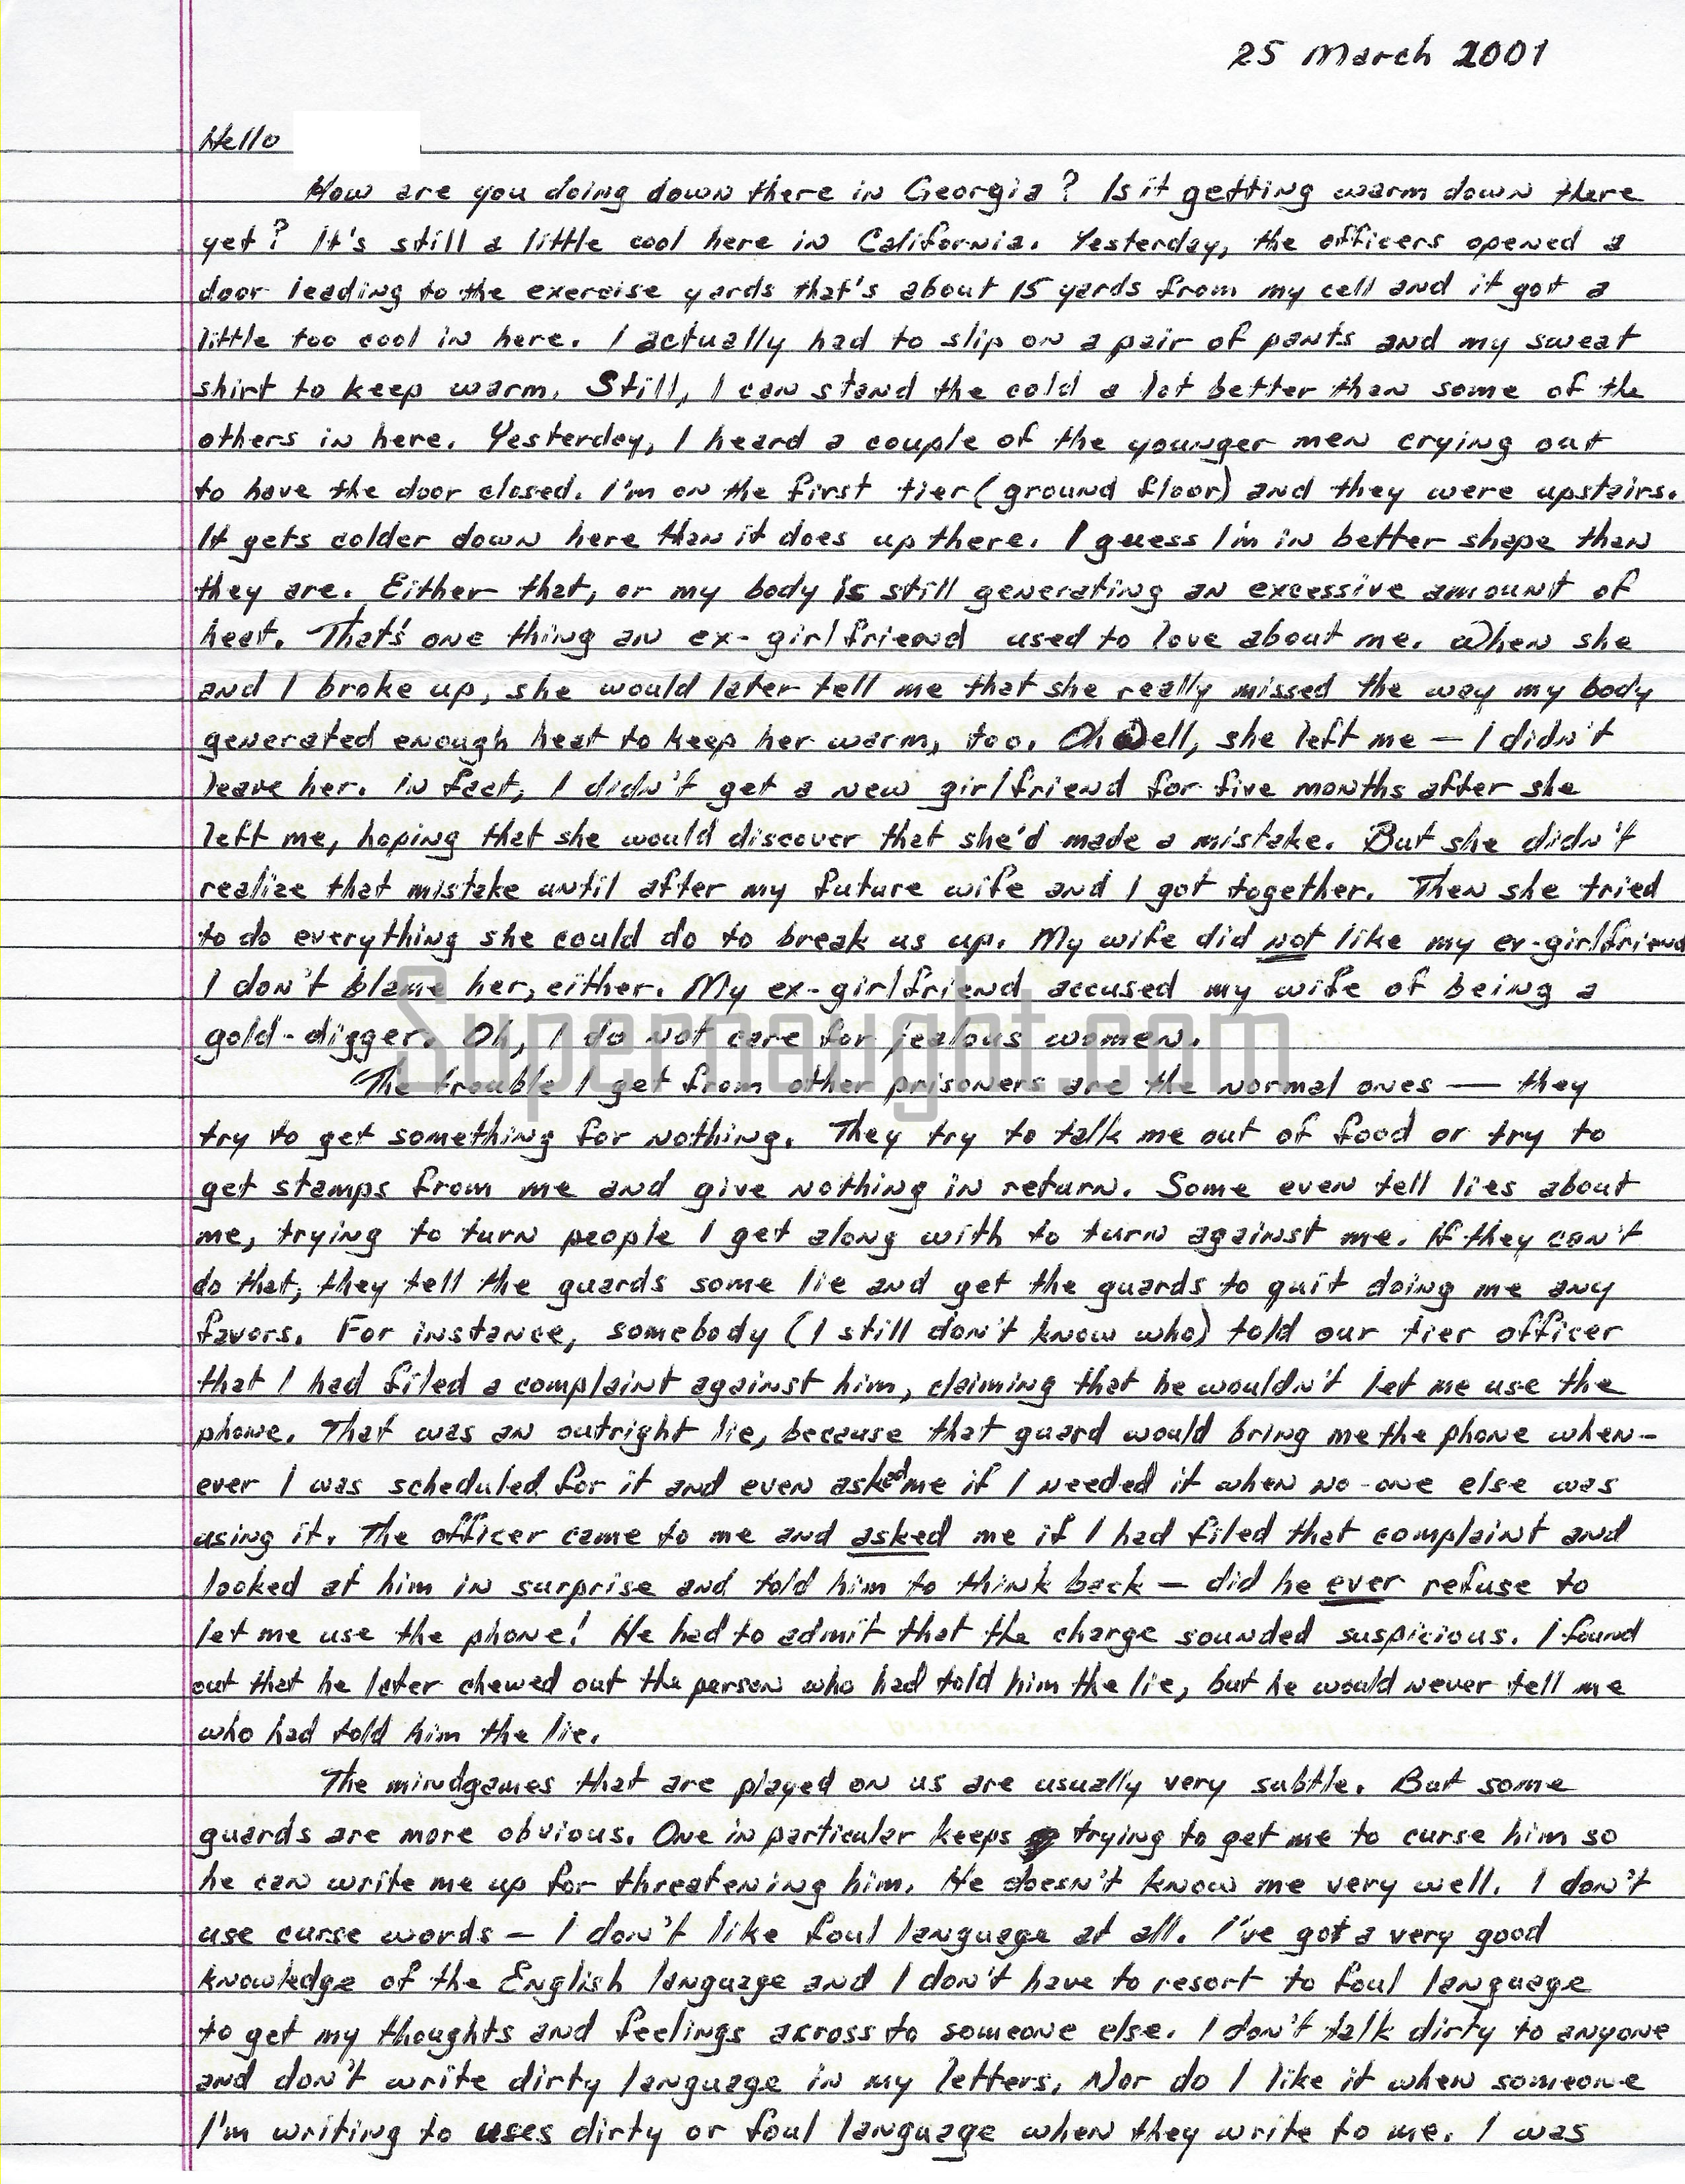 25 March 2001
Hello
How are you doing down there in Georgia? Is it getting warm down there
yet? It's still a little cool here in California. Yesterday, the officers opened a
door leading to the exercise yards that's about 15 yards from my cell and it got a
little too cool in here. I actually had to slip on a pair of pants and my sweat
shirt to keep warm. Still, I can stand the cold a lot better than some of the
others in here. Yesterday, I heard a couple of the younger men crying out
to have the door closed. I'm on the first tier (ground floor) and they were upstairs.
It gets colder down here than it does up there. I guess I'm in better shape than
they are. Either that, or my body is still generating an excessive amount of
heat. That's one thing an ex-girlfriend used to love about me. When she
and I broke up, she would later tell me that she really missed the way my body
generated enough heat to keep her warm, too. Oh Well, she left me — I didn't
leave her. In fact, I didn't get a new girlfriend for five months after she
left me, hoping that she would discover that she'd made a mistake. But she didn't
realize that mistake until after my future wife and I got together. Then she tried
to do everything she could do to break us up. My wife did not like my ex-girlfriend
I don't blame her, either. My ex-girlfriend accused my wife of being a
gold-digger. Oh, I do not care for jealous women.
Supernaught.com
The trouble I get from other prisoners are the normal ones — they
try to get something for nothing. They try to talk me out of food or try to
get stamps from me and give nothing in return. Some even tell lies about
me, trying to turn people I get along with to turn against me. If they can't
do that, they tell the guards some lie and get the guards to quit doing me any
favors. For instance, somebody (I still don't know who) told our tier officer
that I had filed a complaint against him, claiming that he wouldn't let me use the
phone. That was an outright lie, because that guard would bring me the phone when-
ever I was scheduled for it and even asked me if I needed it when no-one else was
using it. The officer came to me and asked me if I had filed that complaint and
looked at him in surprise and told him to think back — did he ever refuse to
let me use the phone! He had to admit that the charge sounded suspicious. I found
out that he later chewed out the person who had told him the lie, but he would never tell me
who had told him the lie.
The mindgames that are played on us are usually very subtle. But some
guards are more obvious. One in particular keeps trying to get me to curse him so
he can write me up for threatening him. He doesn't know me very well. I don't
use curse words — I don't like foul language at all. I've got a very good
knowledge of the English language and I don't have to resort to foul language
to get my thoughts and feelings across to someone else. I don't talk dirty to anyone
and don't write dirty language in my letters. Nor do I like it when someone
I'm writing to uses dirty or foul language when they write to me. I was